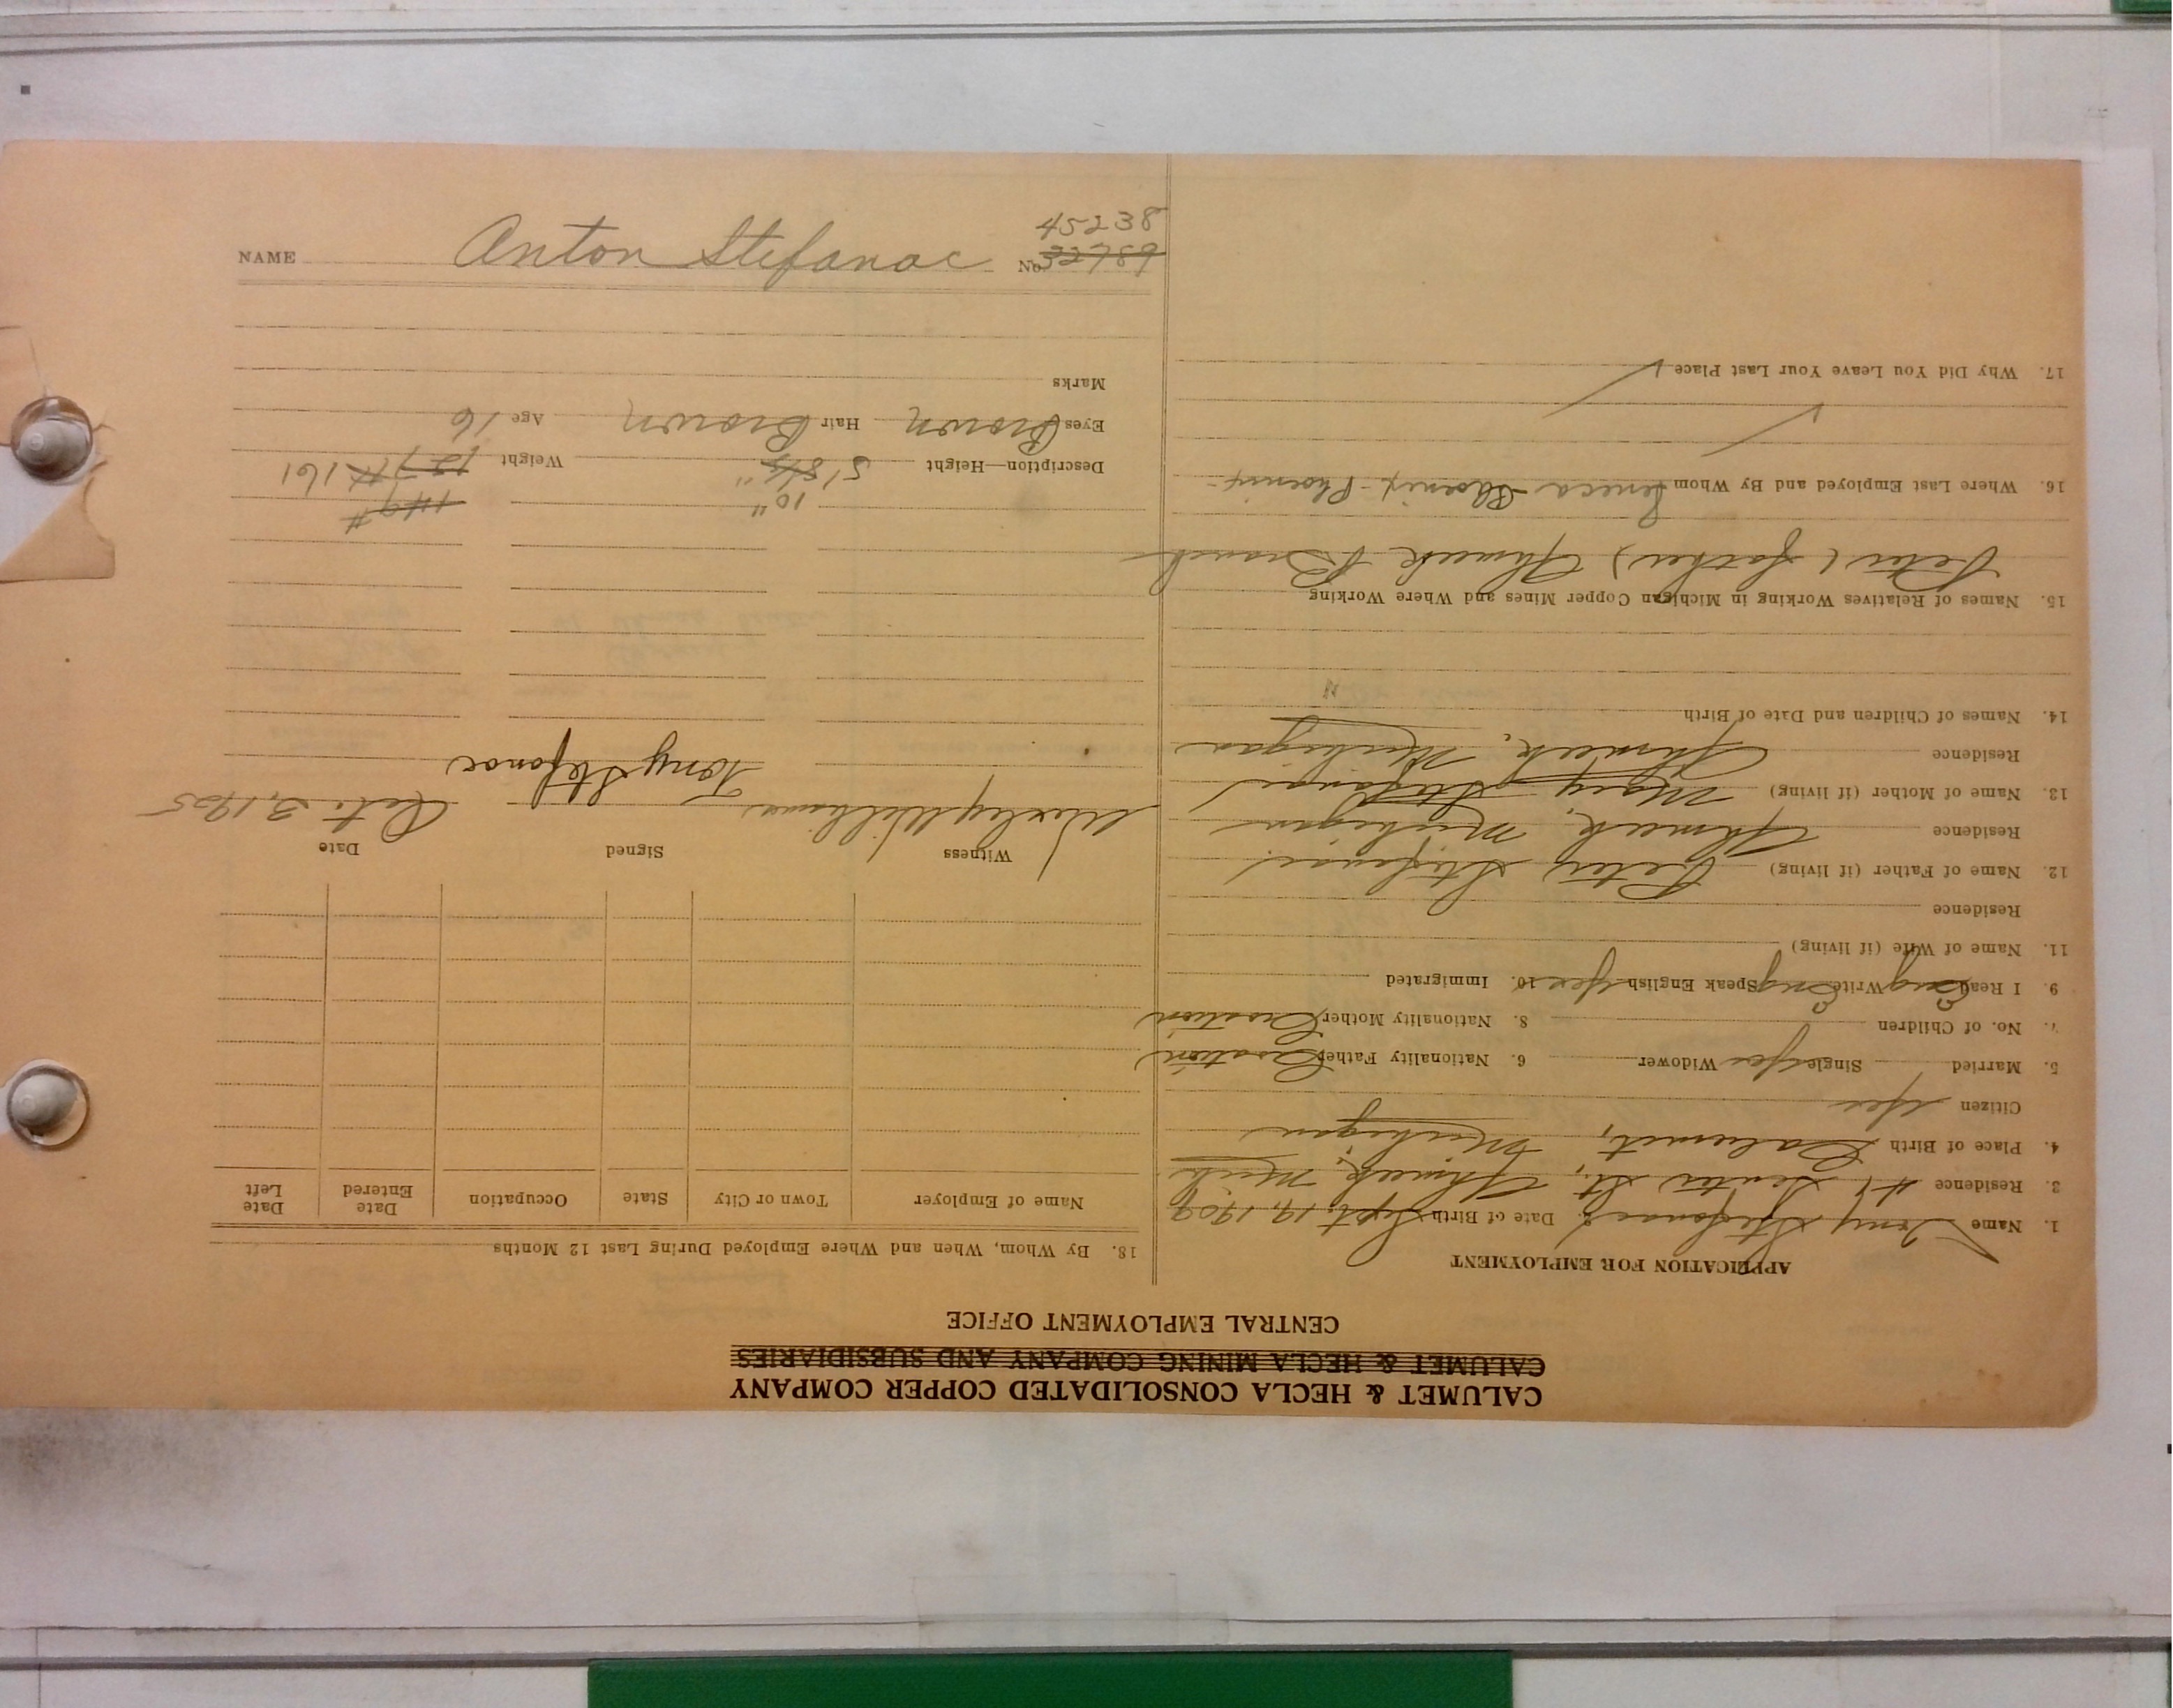 NAME Anton Stefanac No. 45238
32789
CALUMET & HECLA CONSOLIDATED COPPER COMPANY
CALUMET & HECLA MINING COMPANY AND SUBSIDIARIES
CENTRAL EMPLOYMENT OFFICE
APPLICATION FOR EMPLOYMENT
1. Name Tony Stefanac 2. Date of Birth Sept. 19, 1909
3. Residence #4 Senter St., Ahmeek, Mich.
4. Place of Birth Calumet, Michigan
Citizen Yes
5. Married Single Yes Widower 6. Nationality Father Croatian
7. No. of Children 8. Nationality Mother Croatian
9. I Read Eng Write Eng Speak English Yes 10. Immigrated
11. Name of Wife (if living)
Residence
12. Name of Father (if living) Peter Stefanac
Residence Ahmeek, Michigan
13. Name of Mother (if living) Mary Stefanac
Residence Ahmeek, Michigan
14. Names of Children and Date of Birth
15. Names of Relatives Working in Michigan Copper Mines and Where Working
Peter (father) Ahmeek Branch
16. Where Last Employed and By Whom Seneca Phoenix - Phoenix
17. Why Did You Leave Your Last Place
18. By Whom, When and Where Employed During Last 12 Months
Name of Employer Town or City State Occupation Date Entered Date Left
Witness Signed Date
Wesley Williams Tony Stefanac Oct. 3, 1925
10" 149#
Description—Height 5' 8½" Weight 127# 161
Eyes Brown Hair Brown Age 16
Marks